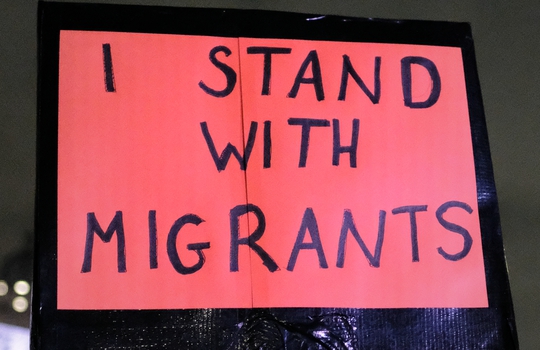 I STAND
WITH
MIGRANTS